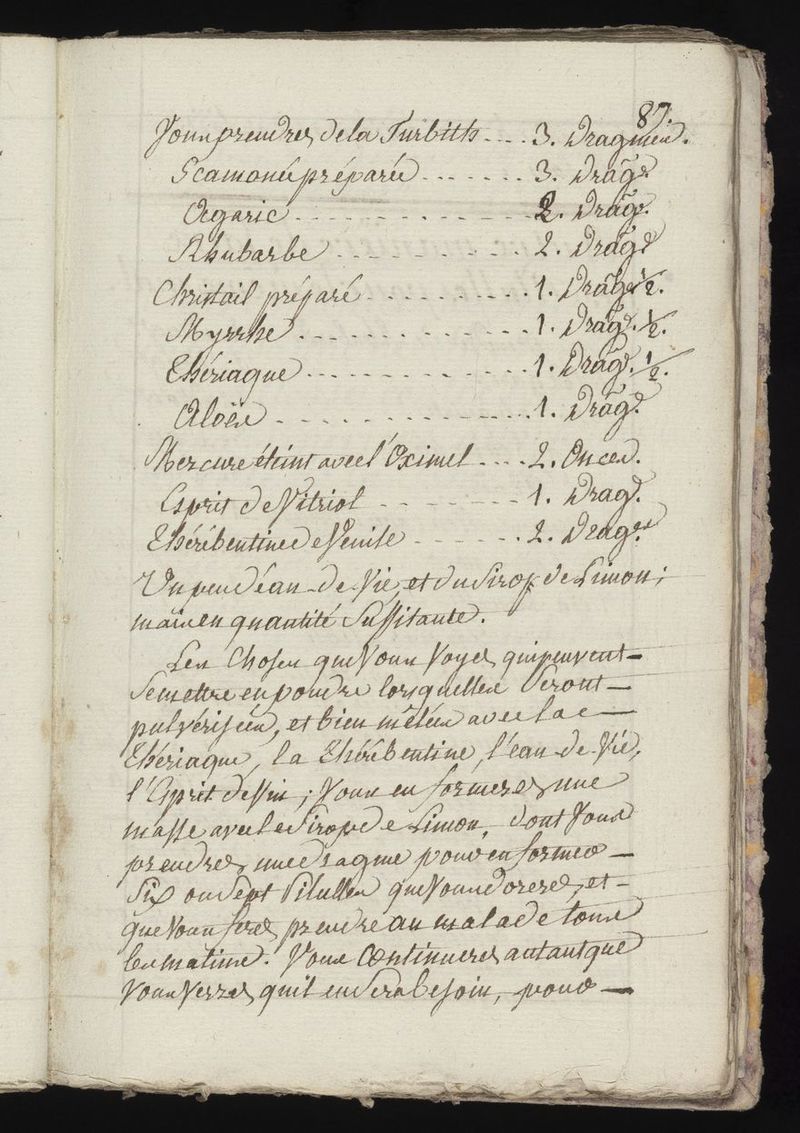 87.
Vous prendrez de la Turbith .... 3. Dragmes.
Scamonée préparée ....... 3. Drag.s
Agaric .............. 2. Drag.
Rhubarbe .......... 2. Drag.s
Christail préparé ........ 1. Drag.e ½.
Myrrhe .......... 1. Drag. ½.
Thériaque .......... 1. Drag. ½.
Aloës .......... 1. Drag.e
Mercure éteint avec l'Oximel .... 2. Onces.
Esprit de Vitriol ........ 1. Drag.
Thérébentine de Venise ...... 2. Drag.es
Un peu d'éau-de-Vie, et du Sirop de Limon;
mais en quantité Suffitante.
Les Choses que Vous Voyez qui peuvent-
Se mettre en poudre lorsquelles Seront-
pulvérisées, et bien mêlées avec la
Thériaque, la Thérébentine, l'eau-de-Vie,
l'Esprit de Vin; Vous en formerez une
masse avec le Sirop de Limon, dont Vous
prendrez une dragme pour en former -
Six ou Sept Pilulles que Vous dorerez, et-
que Vous ferez prendre au malade tous
les matins. Vous continuerez autant que
Vous Verrez qu'il en Sera besoin, pour -